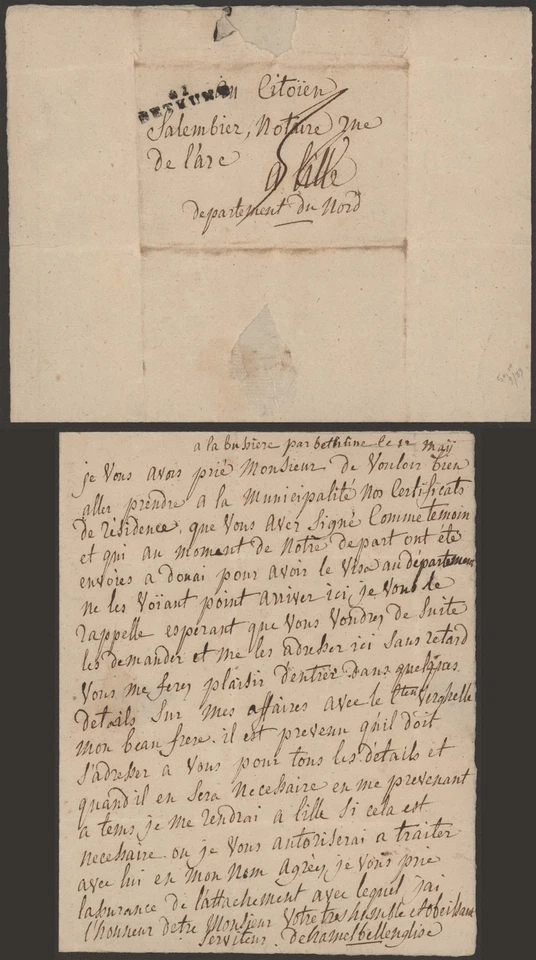 61
BETHUNE
Citoïen
Salembier, Notaire rue
de l'arc
a lille
departement du Nord
a la bussiere par bethune le 12 maÿ
je vous avois prié Monsieur de vouloir bien
aller prendre a la Municipalité Nos Certificats
de résidence, que vous aver signé Comme temoin
et qui au moment de Notre depart ont été
envoïes a douai pour avoir le visa au département
ne les voïant point arriver ici, je vous le
rappelle esperant que vous voudrez de suite
les demander et me les adresser ici sans retard
vous me ferez plaisir d'entrer dans quelques
details sur mes affaires avec le Cten verghelle
mon beau frere. il est prevenu qu'il doit
s'adresser a vous pour tous les détails et
quand il en sera necessaire en me prevenant
a tems, je me rendrai a lille si cela est
necessaire ou je vous autoriserai a traiter
avec lui en mon Nom Agréez je vous prie
lassurance de l'attachement avec lequel jai
l'honneur detre Monsieur votre tres humble et obeissant
serviteur. dehamel bellenglise